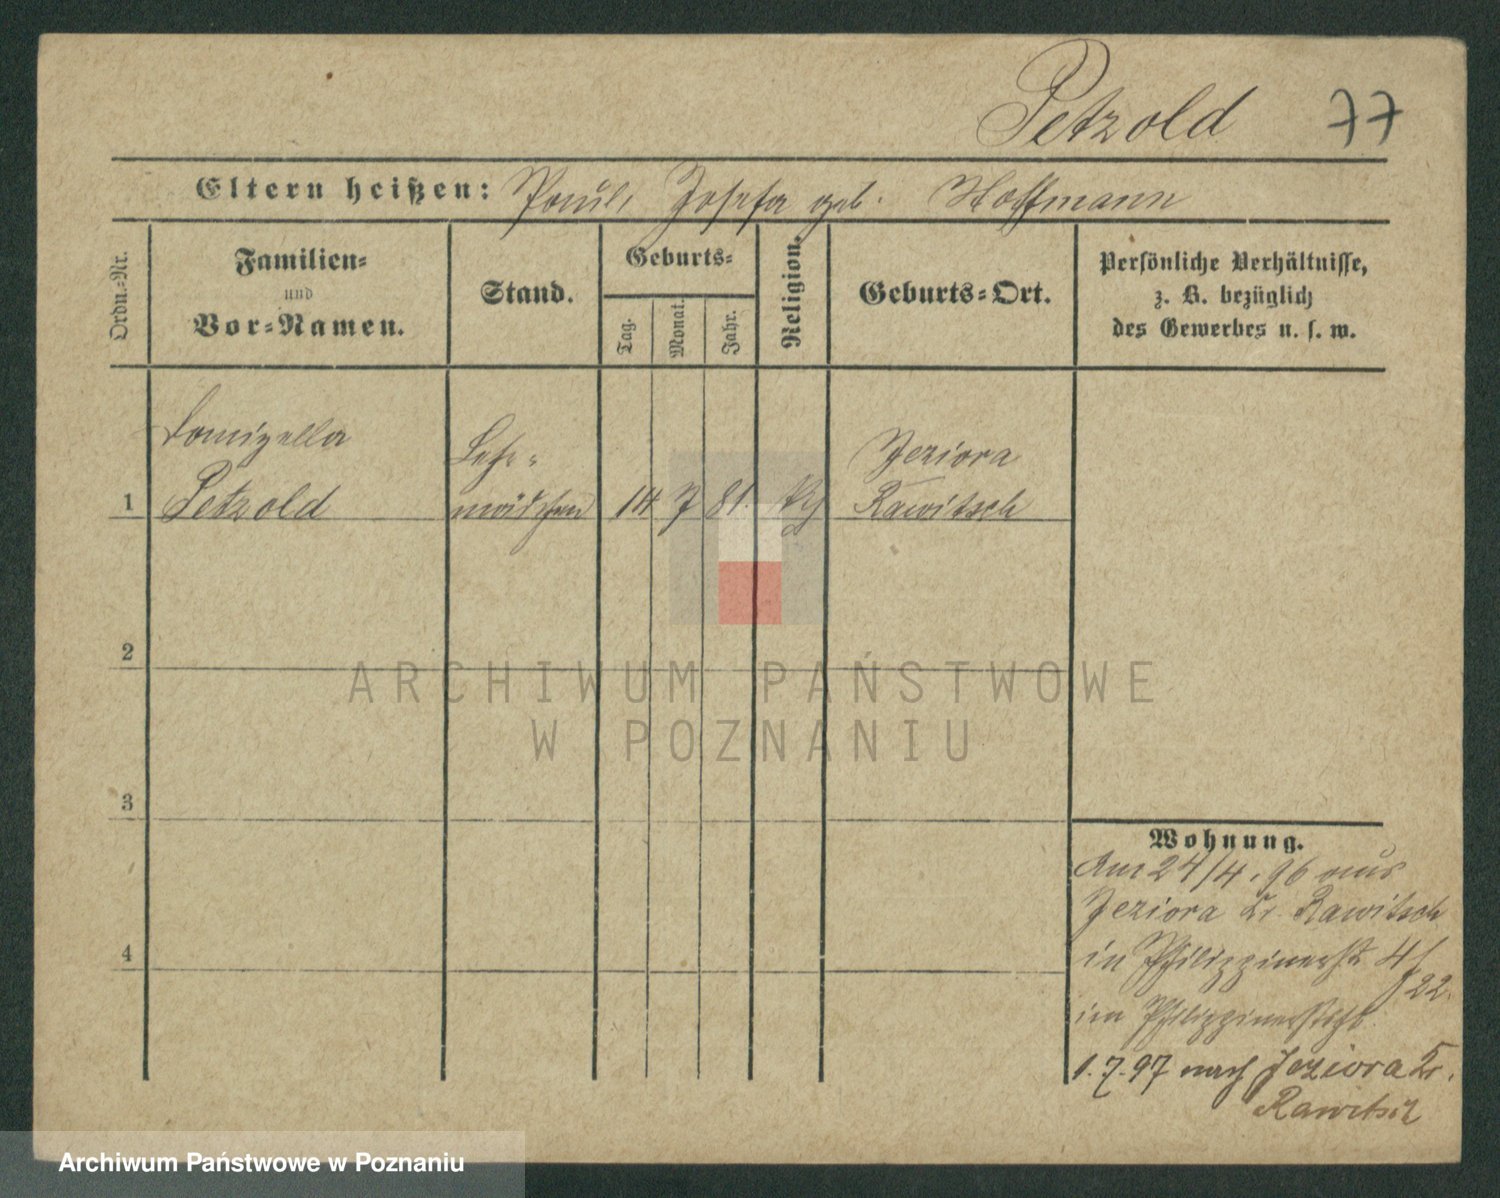 Petzold 77
Eltern heißen: Paul, Josefa geb. Hoffmann
Ordn.-Nr.
Familien-
und
Vor-Namen.
Stand.
Geburts-
Tag.
Monat.
Jahr.
Religion.
Geburts-Ort.
Persönliche Verhältnisse,
z. B. bezüglich
des Gewerbes u. s. w.
Lehr-
Jeziora
1 Petzold mädchen 14 7 81 Rawitsch
2
3
4
Wohnung.
Am 24/4. 96 aus
Jeziora Kr. Rawitsch
in Philippinerstr 4/
22
im
1.7.97 nach Jeziora Kr.
Rawitsch
ARCHIWUM PAŃSTWOWE
W POZNANIU
Archiwum Państwowe w Poznaniu